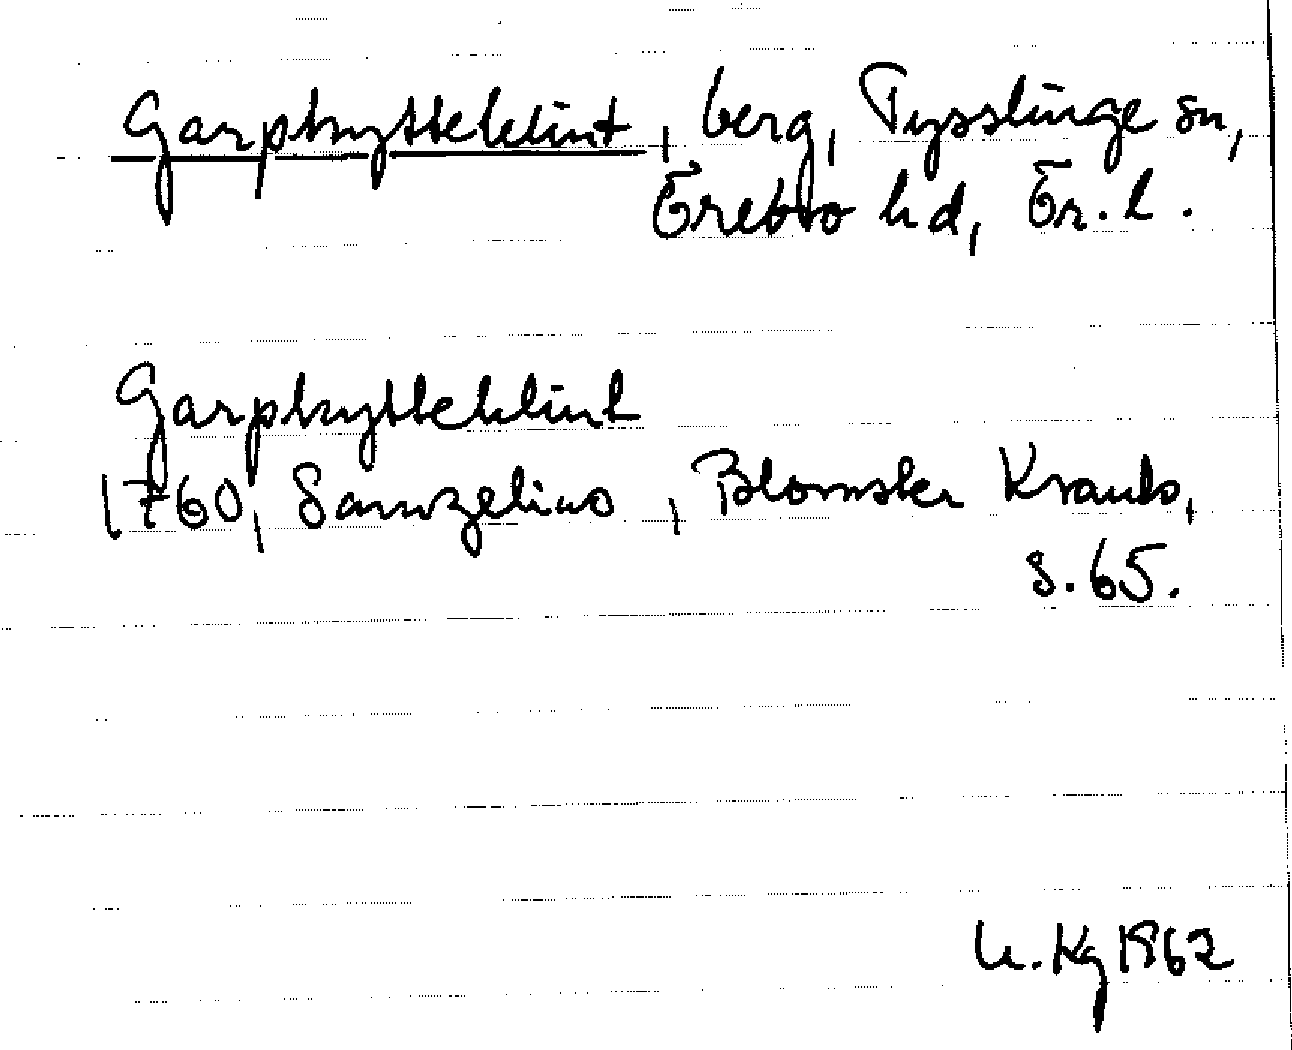 Garphytteklint, berg, Tysslinge sn,
Örebro hd, Ör. l.
Garphytteklint
1760, Samzelius, Blomster Krants,
s. 65.
U. Kg 1962